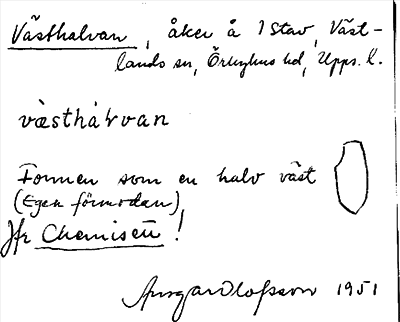 Västhalvan, åker å 1 Stav, Väst-
lands sn, Örbyhus hd, Upps. l.
västhàlvan
Formen som en halv väst
(Egen förmodan)
Jfr Chemisen!
Ansgar Olofsson 1951